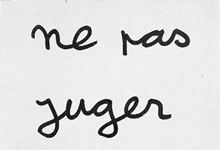 ne pas
juger